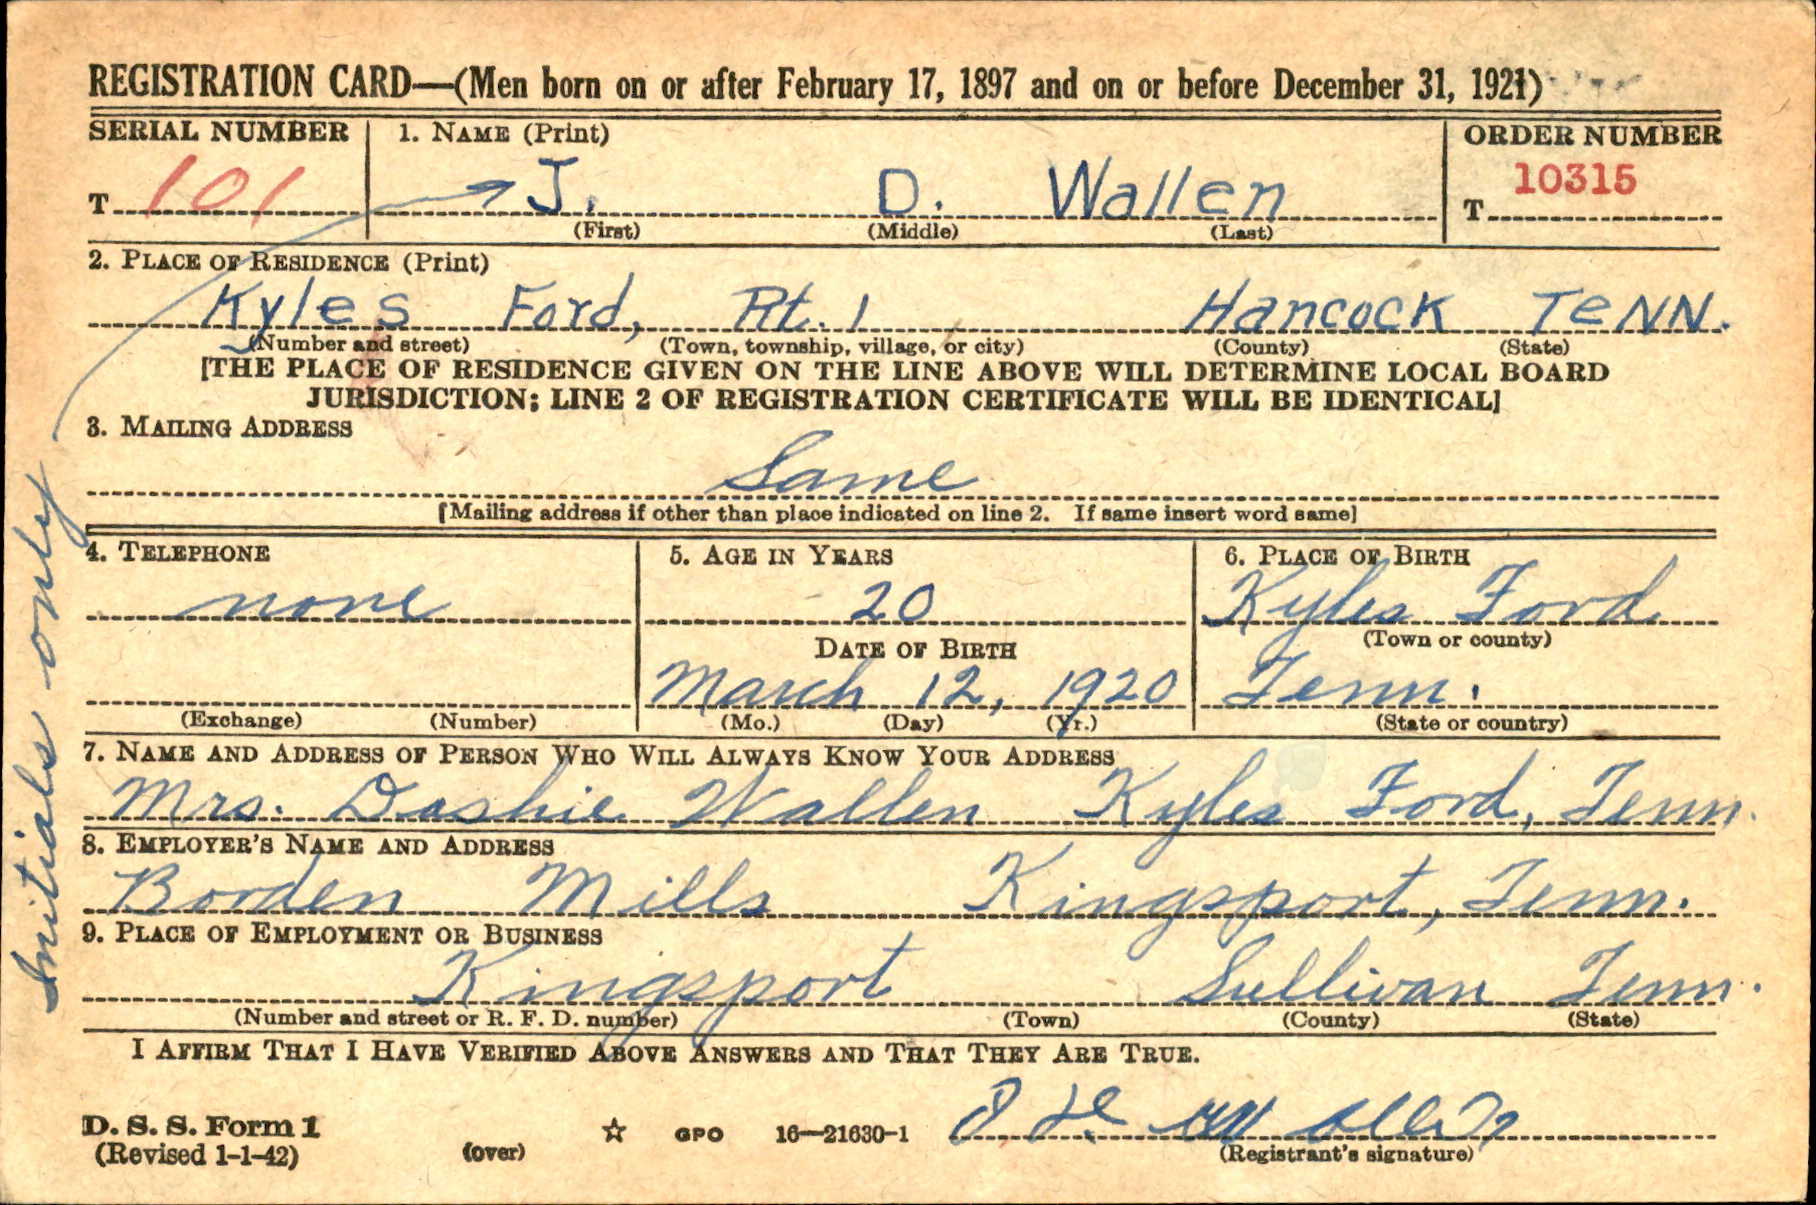 REGISTRATION CARD—(Men born on or after February 17, 1897 and on or before December 31, 1921)
SERIAL NUMBER 1. NAME (Print) ORDER NUMBER
T 101 J. D. Wallen T 10315
(First) (Middle) (Last)
2. PLACE OF RESIDENCE (Print)
Kyles Ford, Rt. 1 Hancock TeNN.
(Number and street) (Town, township, village, or city) (County) (State)
[THE PLACE OF RESIDENCE GIVEN ON THE LINE ABOVE WILL DETERMINE LOCAL BOARD
JURISDICTION; LINE 2 OF REGISTRATION CERTIFICATE WILL BE IDENTICAL]
3. MAILING ADDRESS
Same
[Mailing address if other than place indicated on line 2. If same insert word same]
4. TELEPHONE 5. AGE IN YEARS 6. PLACE OF BIRTH
none 20 Kyles Ford
(Town or county)
DATE OF BIRTH
March 12, 1920 Tenn.
(Exchange) (Number) (Mo.) (Day) (Yr.) (State or country)
7. NAME AND ADDRESS OF PERSON WHO WILL ALWAYS KNOW YOUR ADDRESS
Mrs. Dashie Wallen Kyles Ford, Tenn.
8. EMPLOYER'S NAME AND ADDRESS
Borden Mills Kingsport, Tenn.
9. PLACE OF EMPLOYMENT OR BUSINESS
Kingsport Sullivan Tenn.
(Number and street or R. F. D. number) (Town) (County) (State)
I AFFIRM THAT I HAVE VERIFIED ABOVE ANSWERS AND THAT THEY ARE TRUE.
D. S. S. Form 1
(Revised 1-1-42) (over) ☆ GPO 16—21630-1
(Registrant's signature)
Initials only